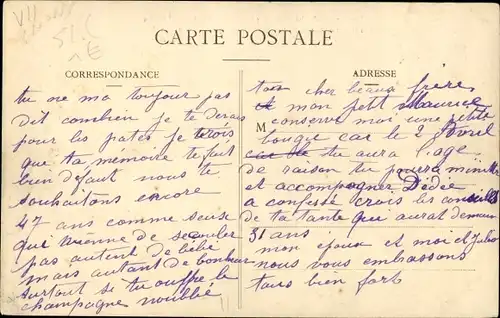 VII
CARTE POSTALE
CORRESPONDANCE
ADRESSE
tu ne ma toujour pas
dit combien je te devais
pour les pates je crois
que ta mémoire te fait
bien défaut nous te
souhaitons encore
47 ans comme seuse
qui vienne de
pas autent de bébé
mais autant de bonheur
surtout si tu ouffre le
champagne
ton cher beau frère
mon petit Maurice
M
conserve moi une petite
bougie car le 2 Avril
tu aura l'age
de raison tu pourra
et accompagner Dédée
a confesse crois les conseils
de ta tante que aurat demain
31 ans
mon époux et moi et
nous vous embrassons
tous bien fort